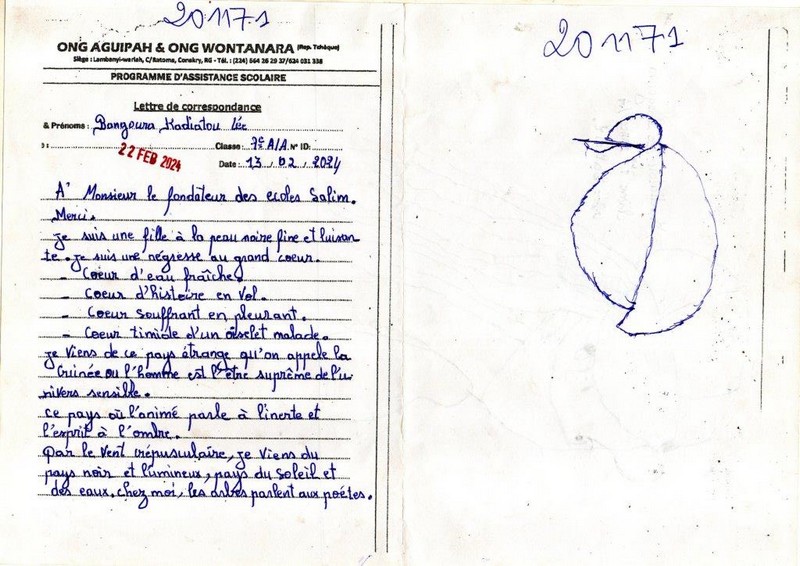 201171
ONG AGUIPAH & ONG WONTANARA (Rep. Tchèque)
Siège : Lambanyi-wariah, C/Ratoma, Conakry, RG - Tél. : (224) 664 26 29 37/624 031 338
PROGRAMME D'ASSISTANCE SCOLAIRE
Lettre de correspondance
& Prénoms : Bangoura Kadiatou
Classe : 7e A/A N° ID:
22 FEB 2024
Date : 13 / 02 / 2024
A' Monsieur le fondateur des ecoles Salim.
Merci.
je suis une fille à la peau noire fine et luisan
te. je suis une négresse au grand coeur.
- Coeur d'eau fraîche.
- Coeur d'histoire en vol.
- Coeur souffrant en pleurant.
- Coeur timide d'un oiselet malade.
je viens de ce pays étrange qu'on appele la
Guinée ou l'homme est l'être suprême de l'u
nivers sensible.
ce pays où l'animé parle à l'inerte et
l'esprit à l'ombre.
Par le vent crépusculaire, je viens du
pays noir et lumineux, pays du soleil et
des eaux. chez moi, les arbres parlent aux poétes.
201171